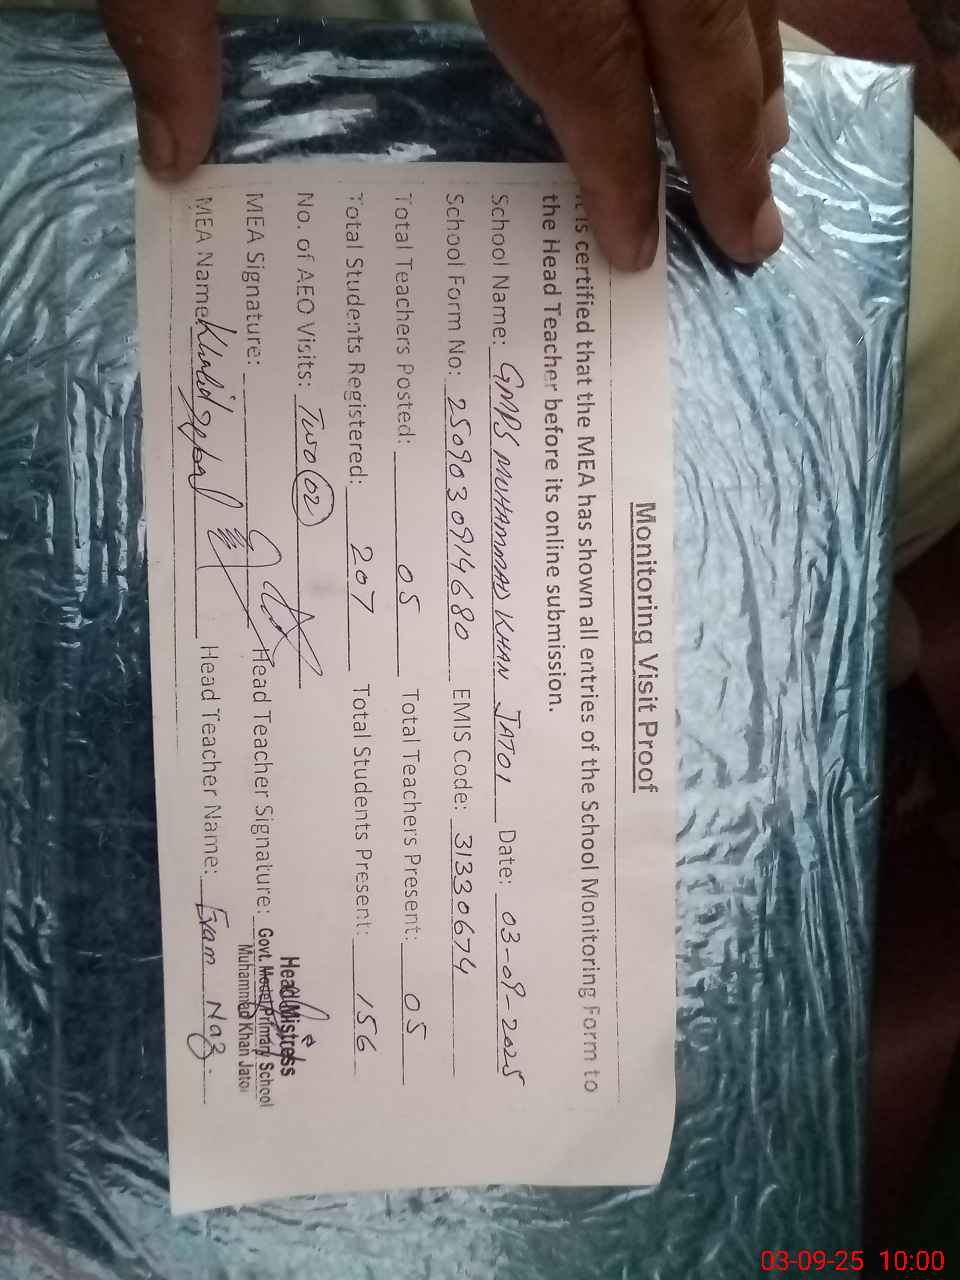 Monitoring Visit Proof
It is certified that the MEA has shown all entries of the School Monitoring Form to
the Head Teacher before its online submission.
School Name: GMPS MUHAMMAD KHAN JATOI Date: 03-09-2025
School Form No: 2509030914680 EMIS Code: 31330674
Total Teachers Posted: 05 Total Teachers Present: 05
Total Students Registered: 207 Total Students Present: 156
No. of AEO Visits: Two (02)
MEA Signature: Head Teacher Signature:
Head Mistress
Govt. Model Primary School
Muhammad Khan Jatoi
MEA Name: Khalid Iqbal Head Teacher Name: Naz
03-09-25 10:00